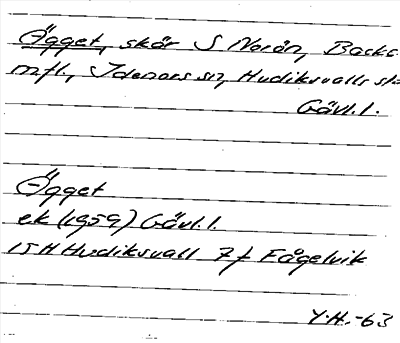 Ägget, skär S Norån, Backe
m fl., Idenors sn, Hudiksvalls sta
Gävl. l.
Ägget
ek (1959) Gävl. l.
15H Hudiksvall 7f Fågelvik
Y.H. -63